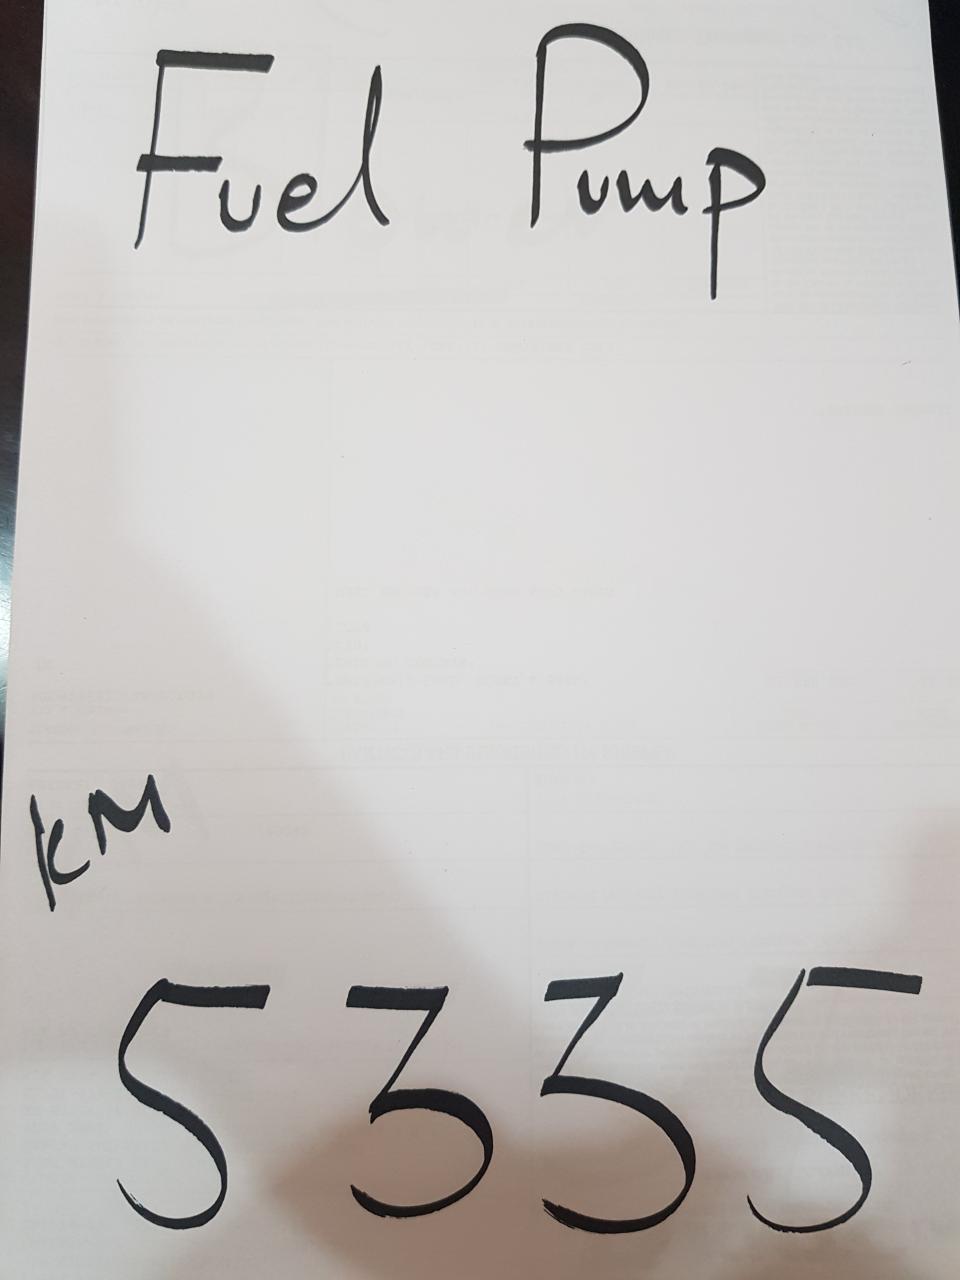 Fuel Pump
KM
5335